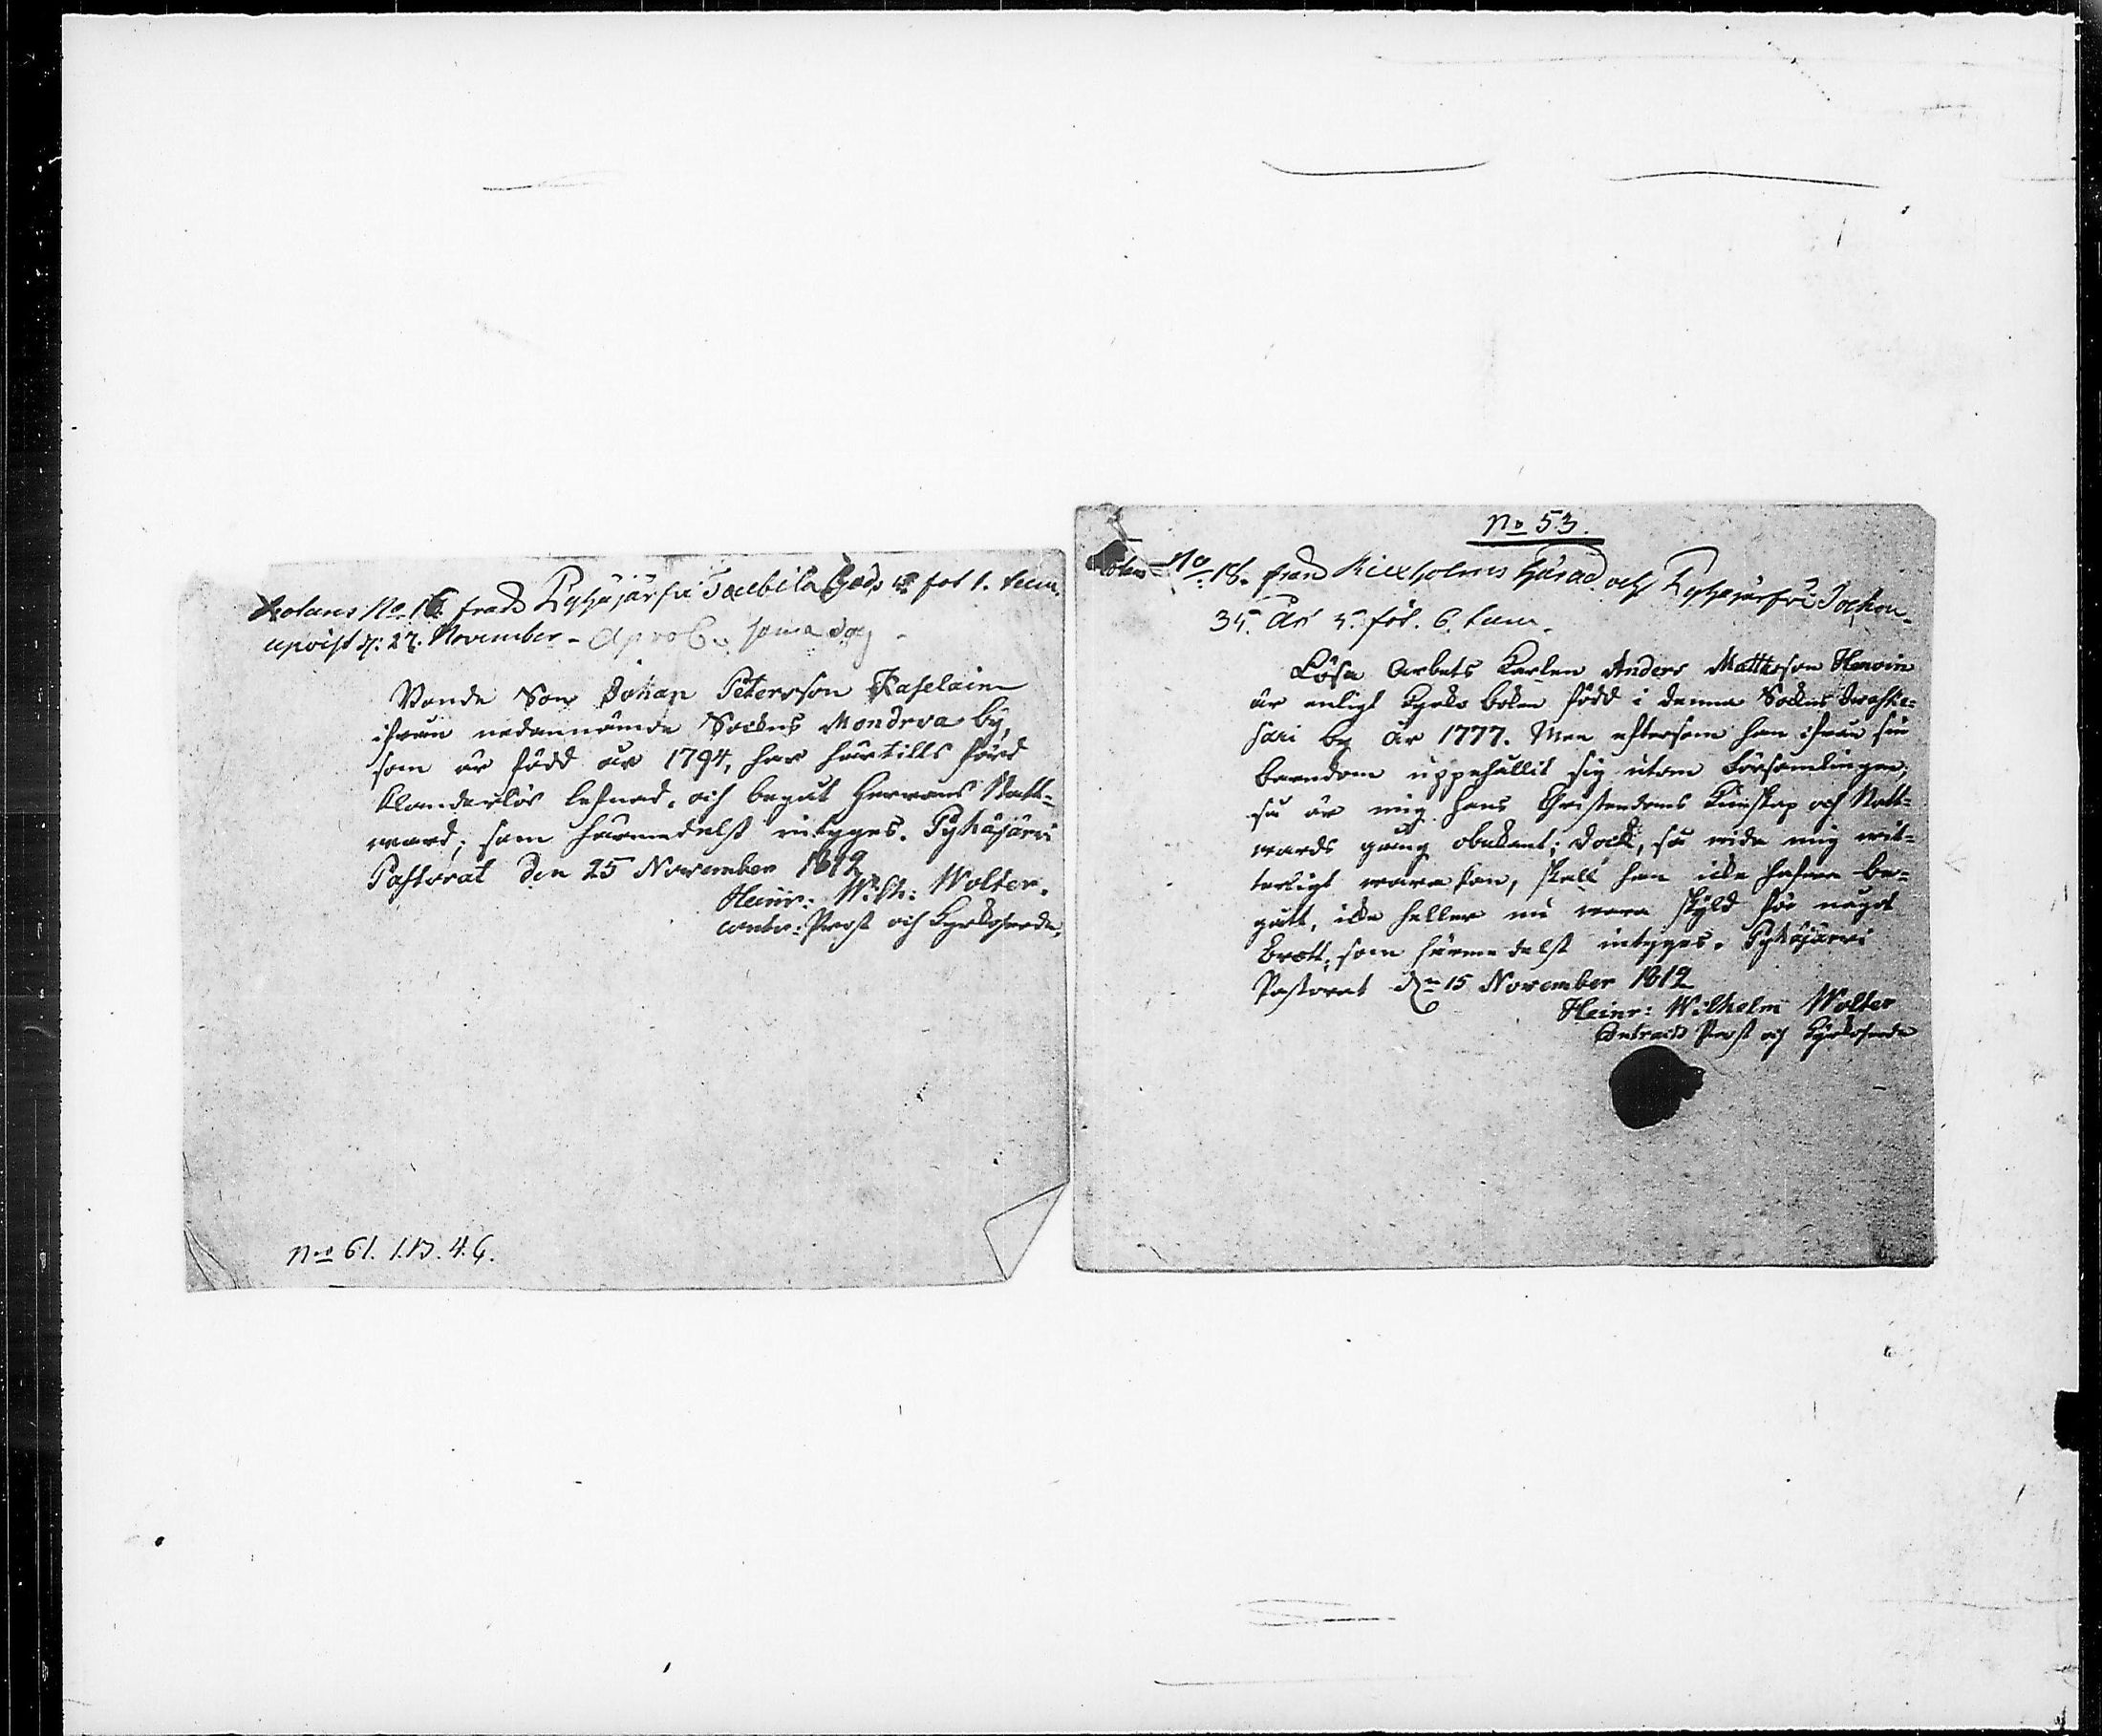 Rotans No. 16. från Pyhäjärfvi Taubila Gods 5 fot 1. tum.
upvist d. 27. November - Aprob. sama dag
Bonde Son Johan Petersson Kaselain
ifrån nedannämde Sockns Mondrva by,
som är född år 1794, har härtills fördt
klanderlös lefnad, och begåt Herrans Natt-
ward; som härmedelst intyges. Pyhäjärvi
Pastorat den 25 November 1812
Heinr: Wilh: Wolter.
contr: Prost och Kyrkoherde.
No 61. 1.B. 4. 6.
No 53.
No. 18. från Kiexholms Härad och Pyhejärfvi Sochen.
35. År 5. fot. 6. tum.
Lösa Arbets Karlen Anders Mattsson Henoin
är enligt Kyrko boken född i denna Sockns
sari by år 1777. Men eftersom han ifrån sin
barndom uppehållit sig utom Församlingen,
så är mig hans Christendoms Kunskap och Natt-
wards gång obekant; dock, så vida mig wit-
terligt wara kan, skall han icke hafwa be-
gått, icke heller nu wara skyld för något
brott; som härmedelst intyges. Pyhäjärvi
Pastorat dn 15 November 1812
Heinr: Wilhelm Wolter
Contracts Prost och Kyrkoherde